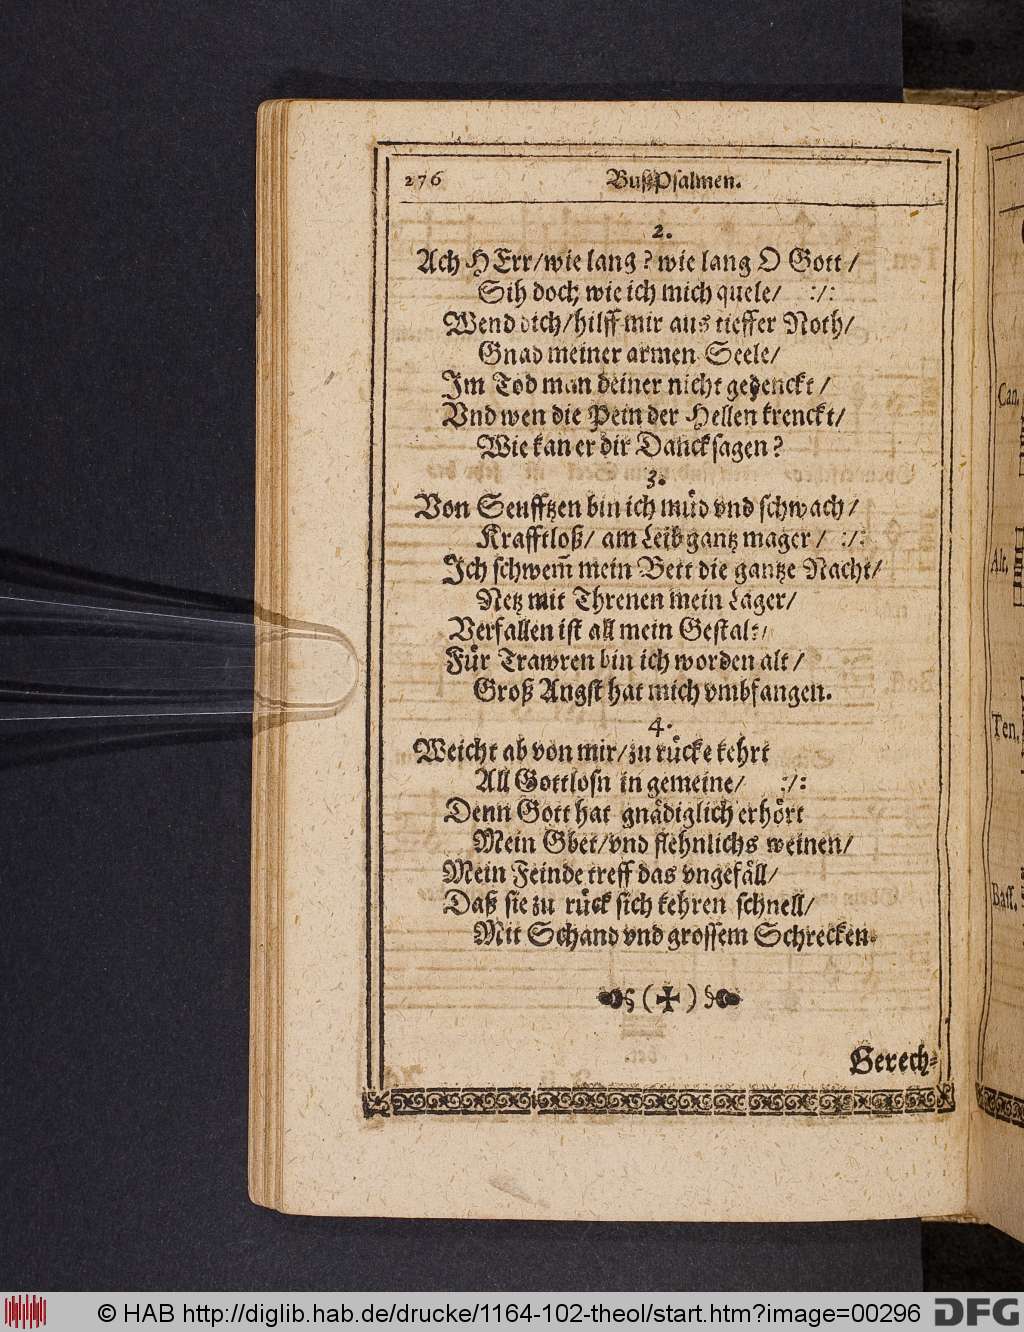 276
BußPsalmen.
2.
Ach HErr/wie lang? wie lang O Gott/
Sih doch wie ich mich quele/ :/:
Wend dich/hilff mir aus tieffer Noth/
Gnad meiner armen Seele/
Im Tod man deiner nicht gedenckt/
Vnd wen die Pein der Hellen krenckt/
Wie kan er dir Danck sagen?
3.
Von Seufftzen bin ich müd vnd schwach/
Krafftloß/ am Leib gantz mager/ :/:
Ich schwem̃ mein Bett die gantze Nacht/
Netz mit Threnen mein Lager/
Verfallen ist all mein Gestalt/
Für Trawren bin ich worden alt/
Groß Angst hat mich vmbfangen.
4.
Weicht ab von mir/zu rücke kehrt
All Gottlosn in gemeine/ :/:
Denn Gott hat gnädiglich erhört
Mein Gbet/vnd flehnlichs weinen/
Mein Feinde treff das vngefäll/
Daß sie zu rück sich kehren schnell/
Mit Schand vnd grossem Schrecken.
Gerech-
Can.
Alt.
Ten.
Bass.
© HAB http://diglib.hab.de/drucke/1164-102-theol/start.htm?image=00296
DFG